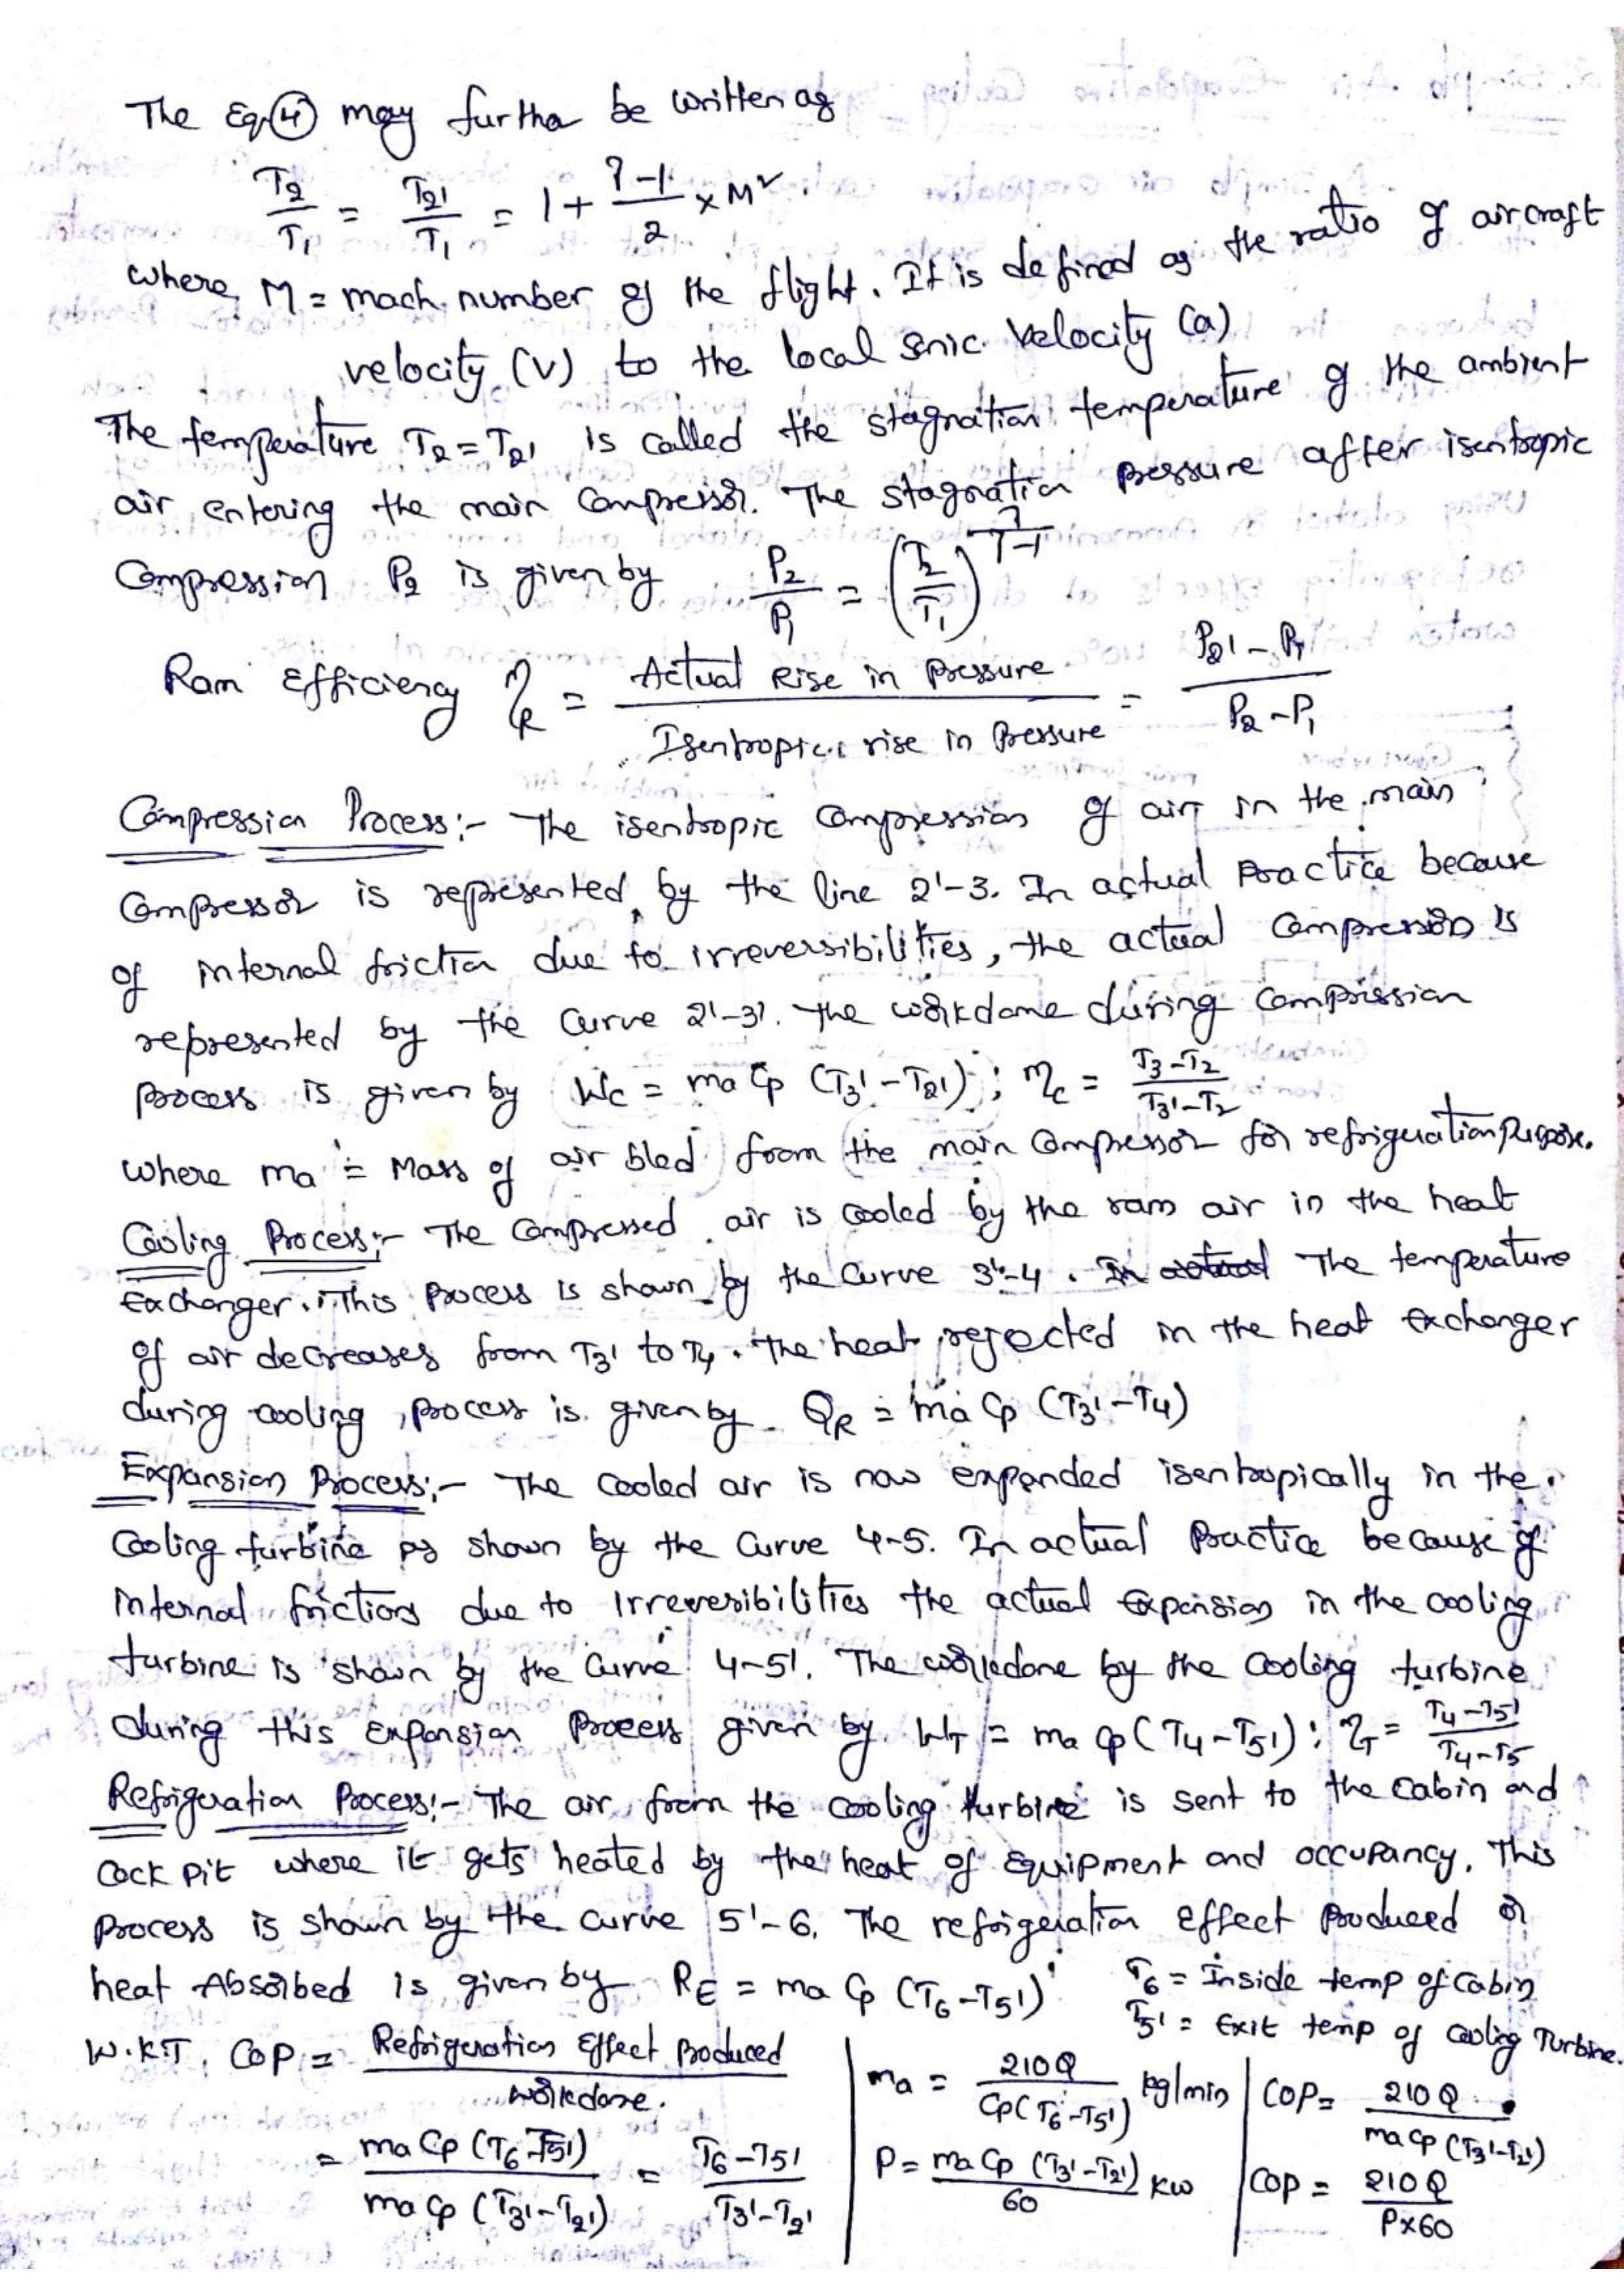 The Eq ④ may further be written as
T2/T1 = T2'/T1 = 1 + (γ-1)/2 × M²
where, M = mach number of the flight. It is defined as the ratio of aircraft
velocity (V) to the local sonic velocity (a)
The temperature T2 = T2' is called the stagnation temperature of the ambient
air entering the main compressor. The stagnation pressure after isentropic
compression P2 is given by P2/P1 = (T2/T1)^(γ/(γ-1))
Ram Efficiency ηR = Actual Rise in pressure / Isentropic rise in Pressure = (P2' - P1) / (P2 - P1)
Compression Process:- The isentropic compression of air in the main
compressor is represented by the line 2'-3. In actual practice because
of internal friction due to irreversibilities, the actual compression is
represented by the curve 2'-3'. The workdone during compression
process is given by Wc = ma Cp (T3' - T2') ; ηc = (T3 - T2) / (T3' - T2)
where ma = Mass of air bled from the main compressor for refrigeration purpose.
Cooling Process:- The compressed air is cooled by the ram air in the heat
Exchanger. This process is shown by the curve 3'-4. In actual The temperature
of air decreases from T3' to T4. The heat rejected in the heat exchanger
during cooling process is given by QR = ma Cp (T3' - T4)
Expansion Process:- The cooled air is now expanded isentropically in the
cooling turbine as shown by the curve 4-5. In actual practice because of
internal friction due to irreversibilities the actual expansion in the cooling
turbine is shown by the curve 4-5'. The workdone by the cooling turbine
during this expansion process given by WT = ma Cp (T4 - T5') ; ηT = (T4 - T5') / (T4 - T5)
Refrigeration Process:- The air from the cooling turbine is sent to the cabin and
cock pit where it gets heated by the heat of equipment and occupancy. This
process is shown by the curve 5'-6. The refrigeration effect produced or
heat Absorbed is given by RE = ma Cp (T6 - T5') T6 = Inside temp of cabin
T5' = Exit temp of cooling Turbine.
W.K.T, COP = Refrigeration effect produced / workdone.
= ma Cp (T6 - T5') / ma Cp (T3' - T2') = (T6 - T5') / (T3' - T2')
ma = 210Q / Cp (T6 - T5') kg/min
P = ma Cp (T3' - T2') / 60 KW
COP = 210 Q / ma Cp (T3' - T2')
COP = 210 Q / P×60